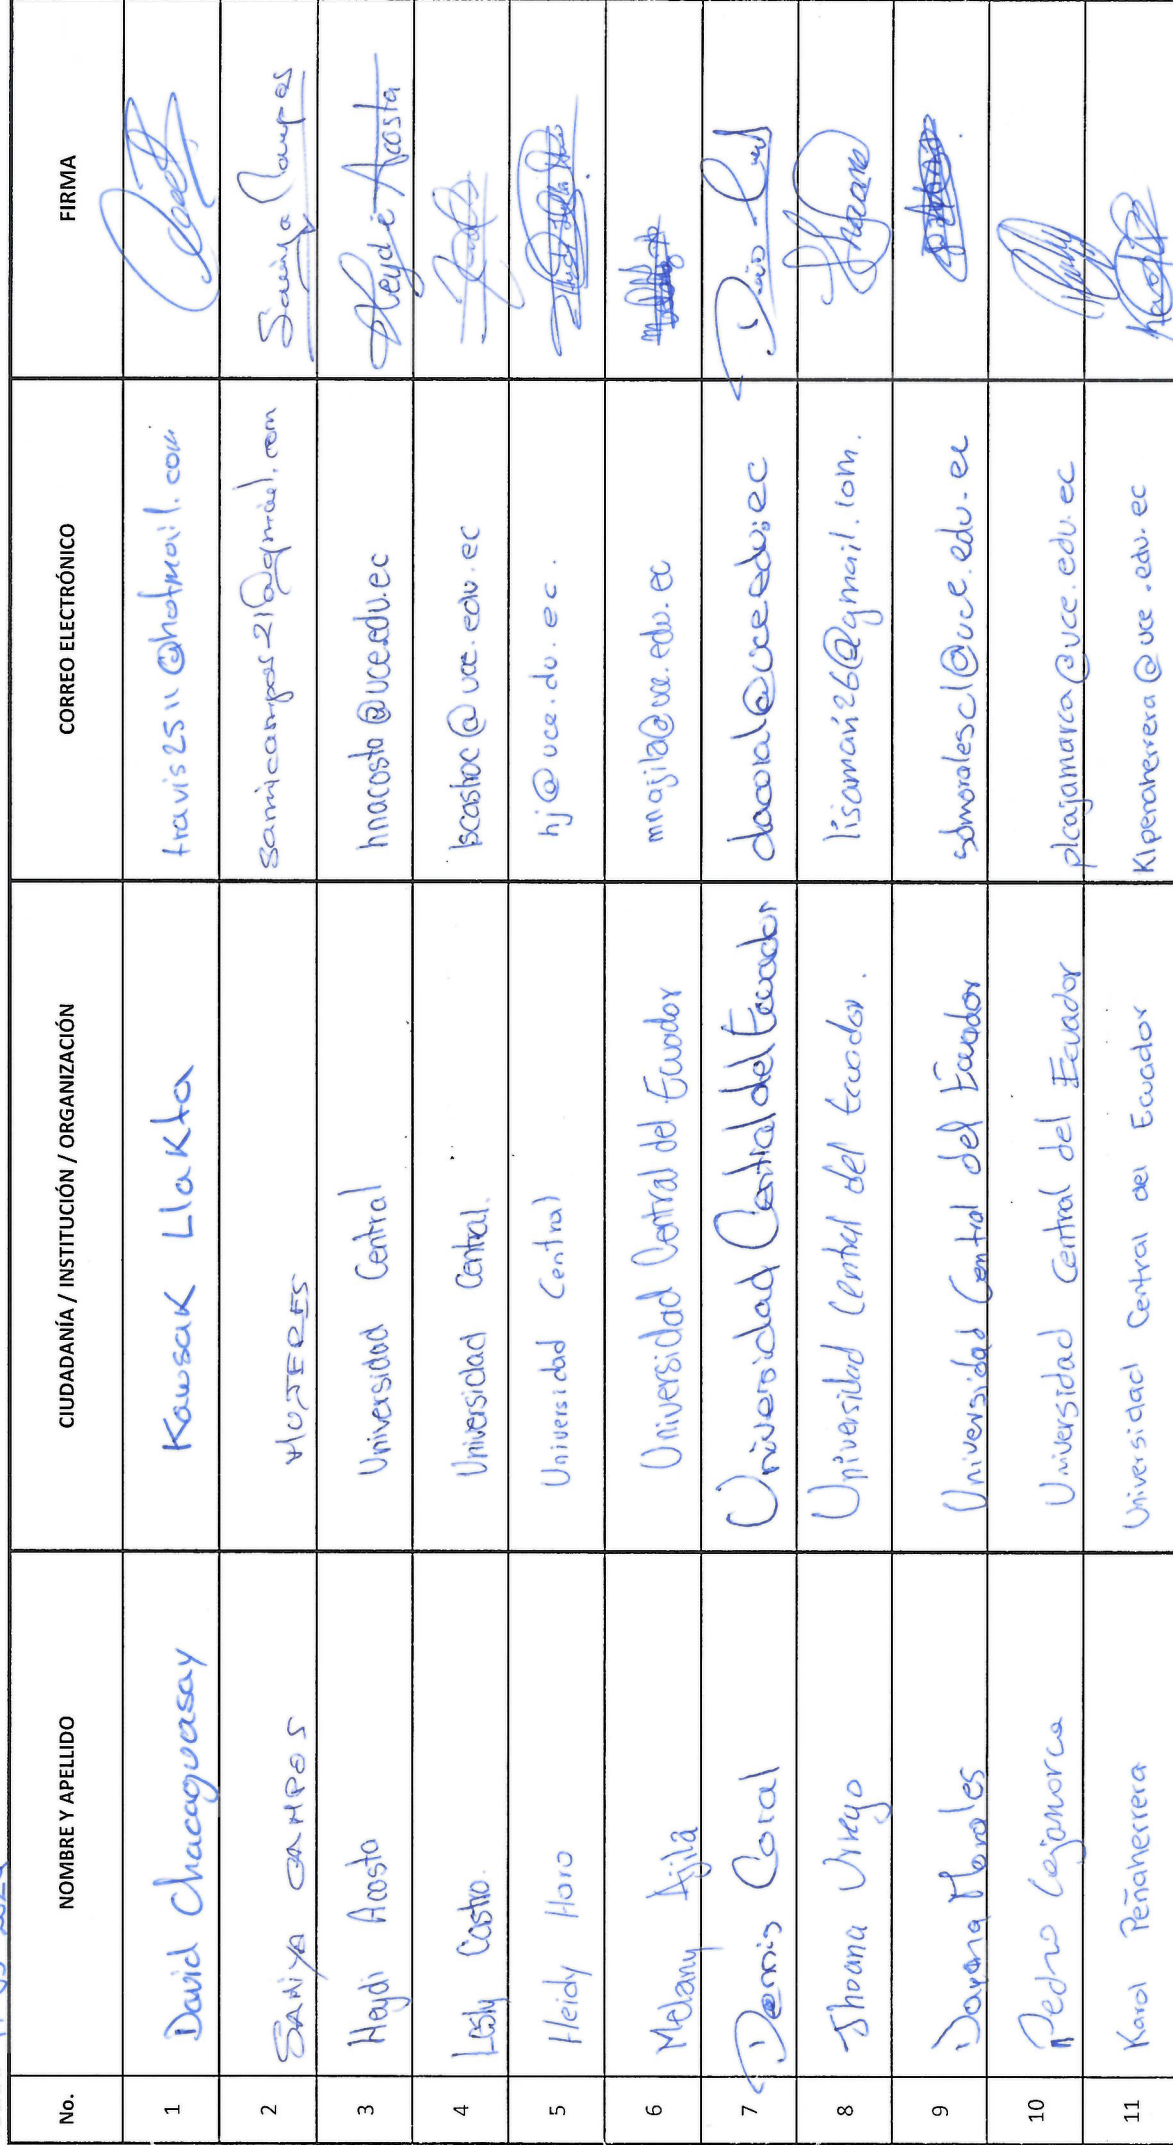 No. NOMBRE Y APELLIDO CIUDADANÍA / INSTITUCIÓN / ORGANIZACIÓN CORREO ELECTRÓNICO FIRMA
1 David Chacaguasay Kawsak Llakta travis2511@hotmail.com
2 SAMIYA CAMPOS MUJERES samicampos21@gmail.com Samiya Campos
3 Heydi Acosta Universidad Central hnacosta@uce.edu.ec Heydi Acosta
4 Lesly Castro. Universidad Central. lscastroc@uce.edu.ec
5 Heidy Haro Universidad Central hj@uce.du.ec.
6 Melany Ajila Universidad Central del Ecuador mnajila@uce.edu.ec
7 Dennis Coral Universidad Central del Ecuador dacoral@uce.edu.ec
8 Jhoana Urrego Universidad Central del Ecuador. lisaman26@gmail.com.
9 Dayana Morales Universidad Central del Ecuador sdmoralescl@uce.edu.ec
10 Pedro Cajamarca Universidad Central del Ecuador plcajamarca@uce.edu.ec
11 Karol Peñaherrera Universidad Central del Ecuador Klpenaherrera@uce.edu.ec